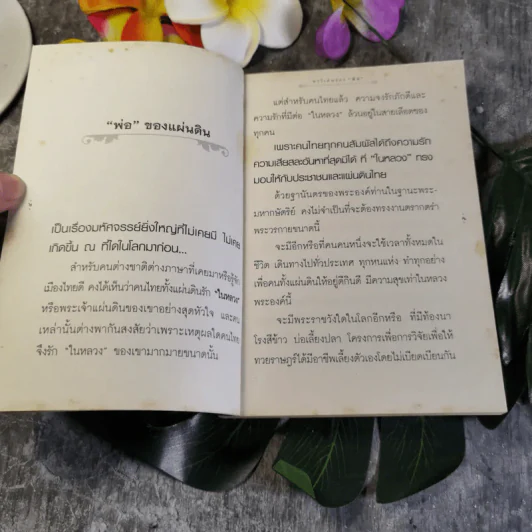 “พ่อ” ของแผ่นดิน
เป็นเรื่องมหัศจรรย์ยิ่งใหญ่ที่ไม่เคยมี ไม่เคย
เกิดขึ้น ณ ที่ใดในโลกมาก่อน...
สำหรับคนต่างชาติต่างภาษาที่เคยมาหรือรู้จัก
เมืองไทยดี คงได้เห็นว่าคนไทยทั้งแผ่นดินรัก “ในหลวง”
หรือพระเจ้าแผ่นดินของเขาอย่างสุดหัวใจ และคน
เหล่านั้นต่างพากันสงสัยว่าเพราะเหตุผลใดคนไทย
จึงรัก “ในหลวง” ของเขามากมายขนาดนั้น
แต่สำหรับคนไทยแล้ว ความจงรักภักดีและ
ความรักที่มีต่อ “ในหลวง” ล้วนอยู่ในสายเลือดของ
ทุกคน
เพราะคนไทยทุกคนสัมผัสได้ถึงความรัก
ความเสียสละอันหาที่สุดมิได้ ที่ “ในหลวง” ทรง
มอบให้กับประชาชนและแผ่นดินไทย
ด้วยฐานันดรของพระองค์ท่านในฐานะพระ-
มหากษัตริย์ คงไม่จำเป็นที่จะต้องทรงงานตรากตรำ
พระวรกายขนาดนี้
จะมีอีกหรือที่คนคนหนึ่งจะใช้เวลาทั้งหมดใน
ชีวิต เดินทางไปทั่วประเทศ ทุกหนแห่ง ทำทุกอย่าง
เพื่อคนทั้งแผ่นดินให้อยู่ดีกินดี มีความสุขเท่าในหลวง
พระองค์นี้
จะมีพระราชวังใดในโลกอีกหรือ ที่มีท้องนา
โรงสีข้าว บ่อเลี้ยงปลา โครงการเพื่อการวิจัยเพื่อให้
ทวยราษฎร์ได้มีอาชีพเลี้ยงตัวเองโดยไม่เบียดเบียนกัน